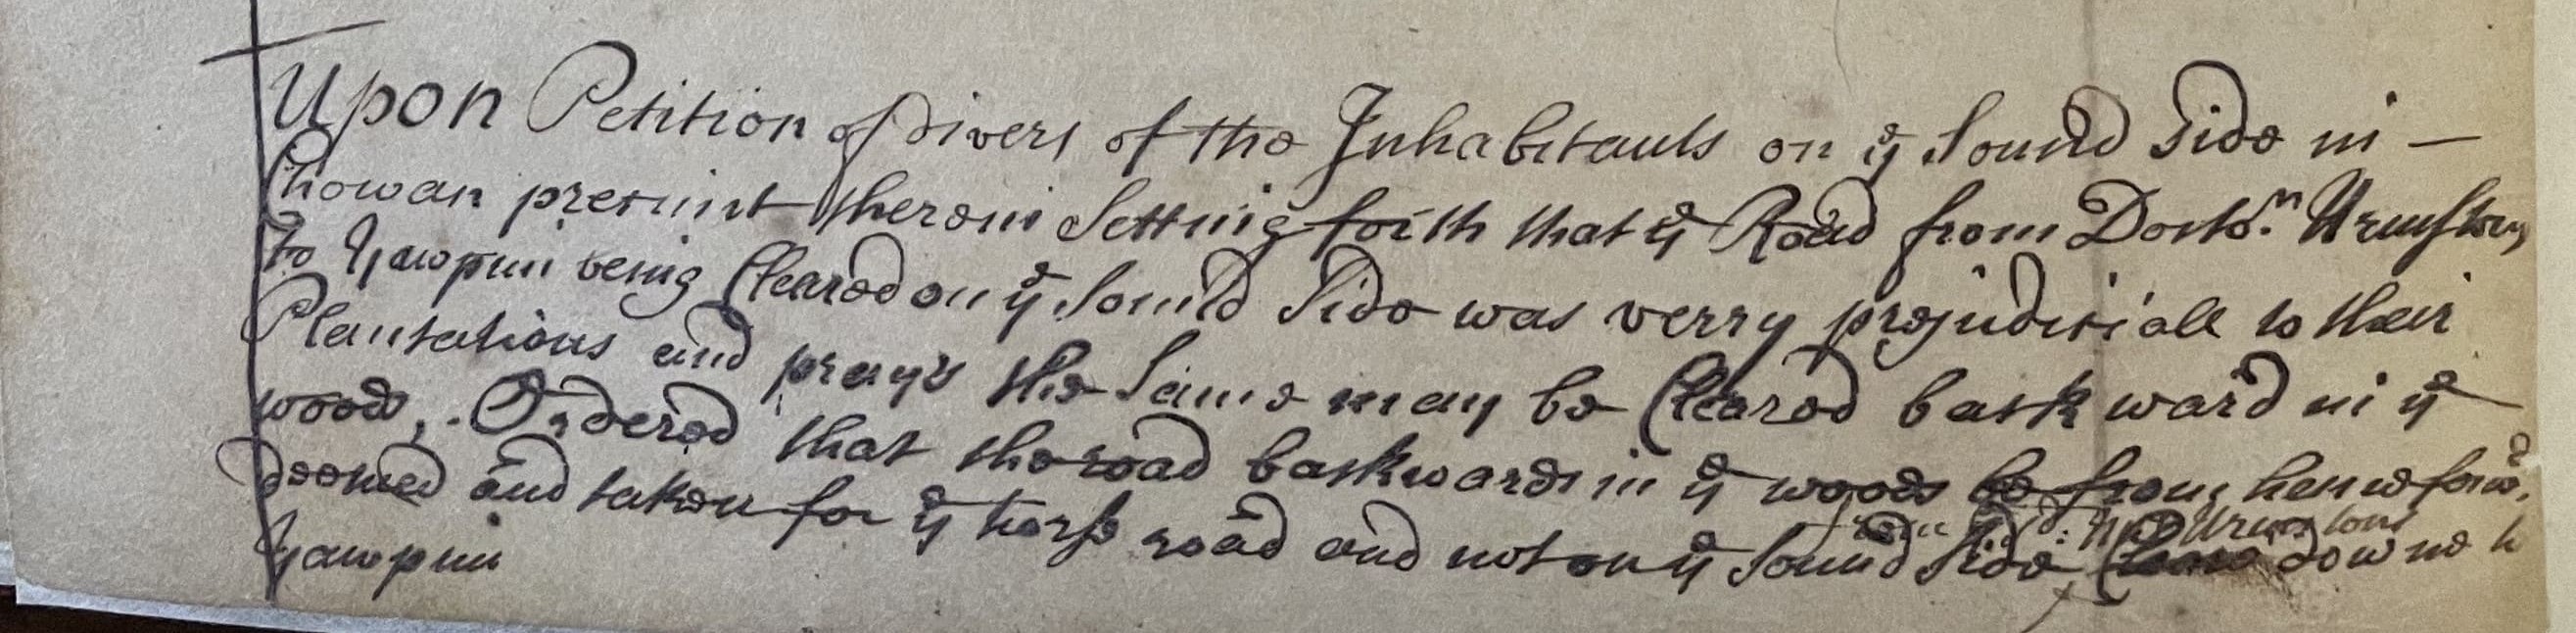 Upon Petition of Divers of the Inhabitants on ye Sound Side in —
Chowan precinct therein Setting forth that ye Road from Doctor. Urmstons
to Yawpim being Cleared on ye Sound Side was verry prejudiciall to their
Plantations and prays the Same may be Cleared back ward in ye
woods, . Ordered that the road backwards in ye woods be from henceforwd.
deemed and taken for ye horse road and not on ye Sound Side downe to
Urmstons
Yawpim